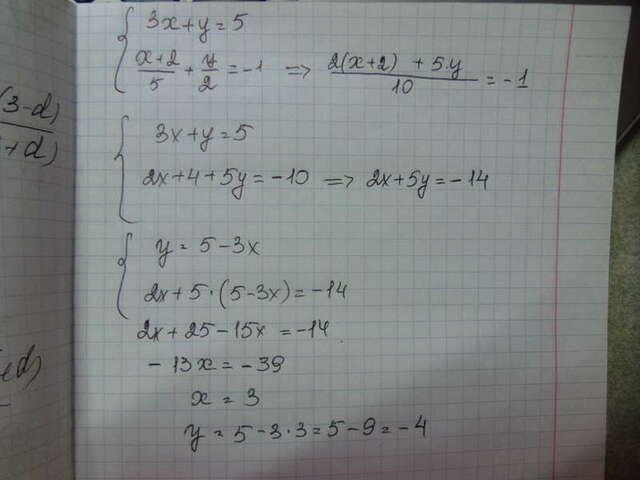 3x+y=5
(x+2)/5 + y/2 = -1 => (2(x+2) + 5·y)/10 = -1
3x+y=5
2x+4+5y=-10 => 2x+5y=-14
(3-d)
+d)
y=5-3x
2x+5·(5-3x)=-14
2x+25-15x=-14
-13x=-39
d)
x=3
y=5-3·3=5-9=-4